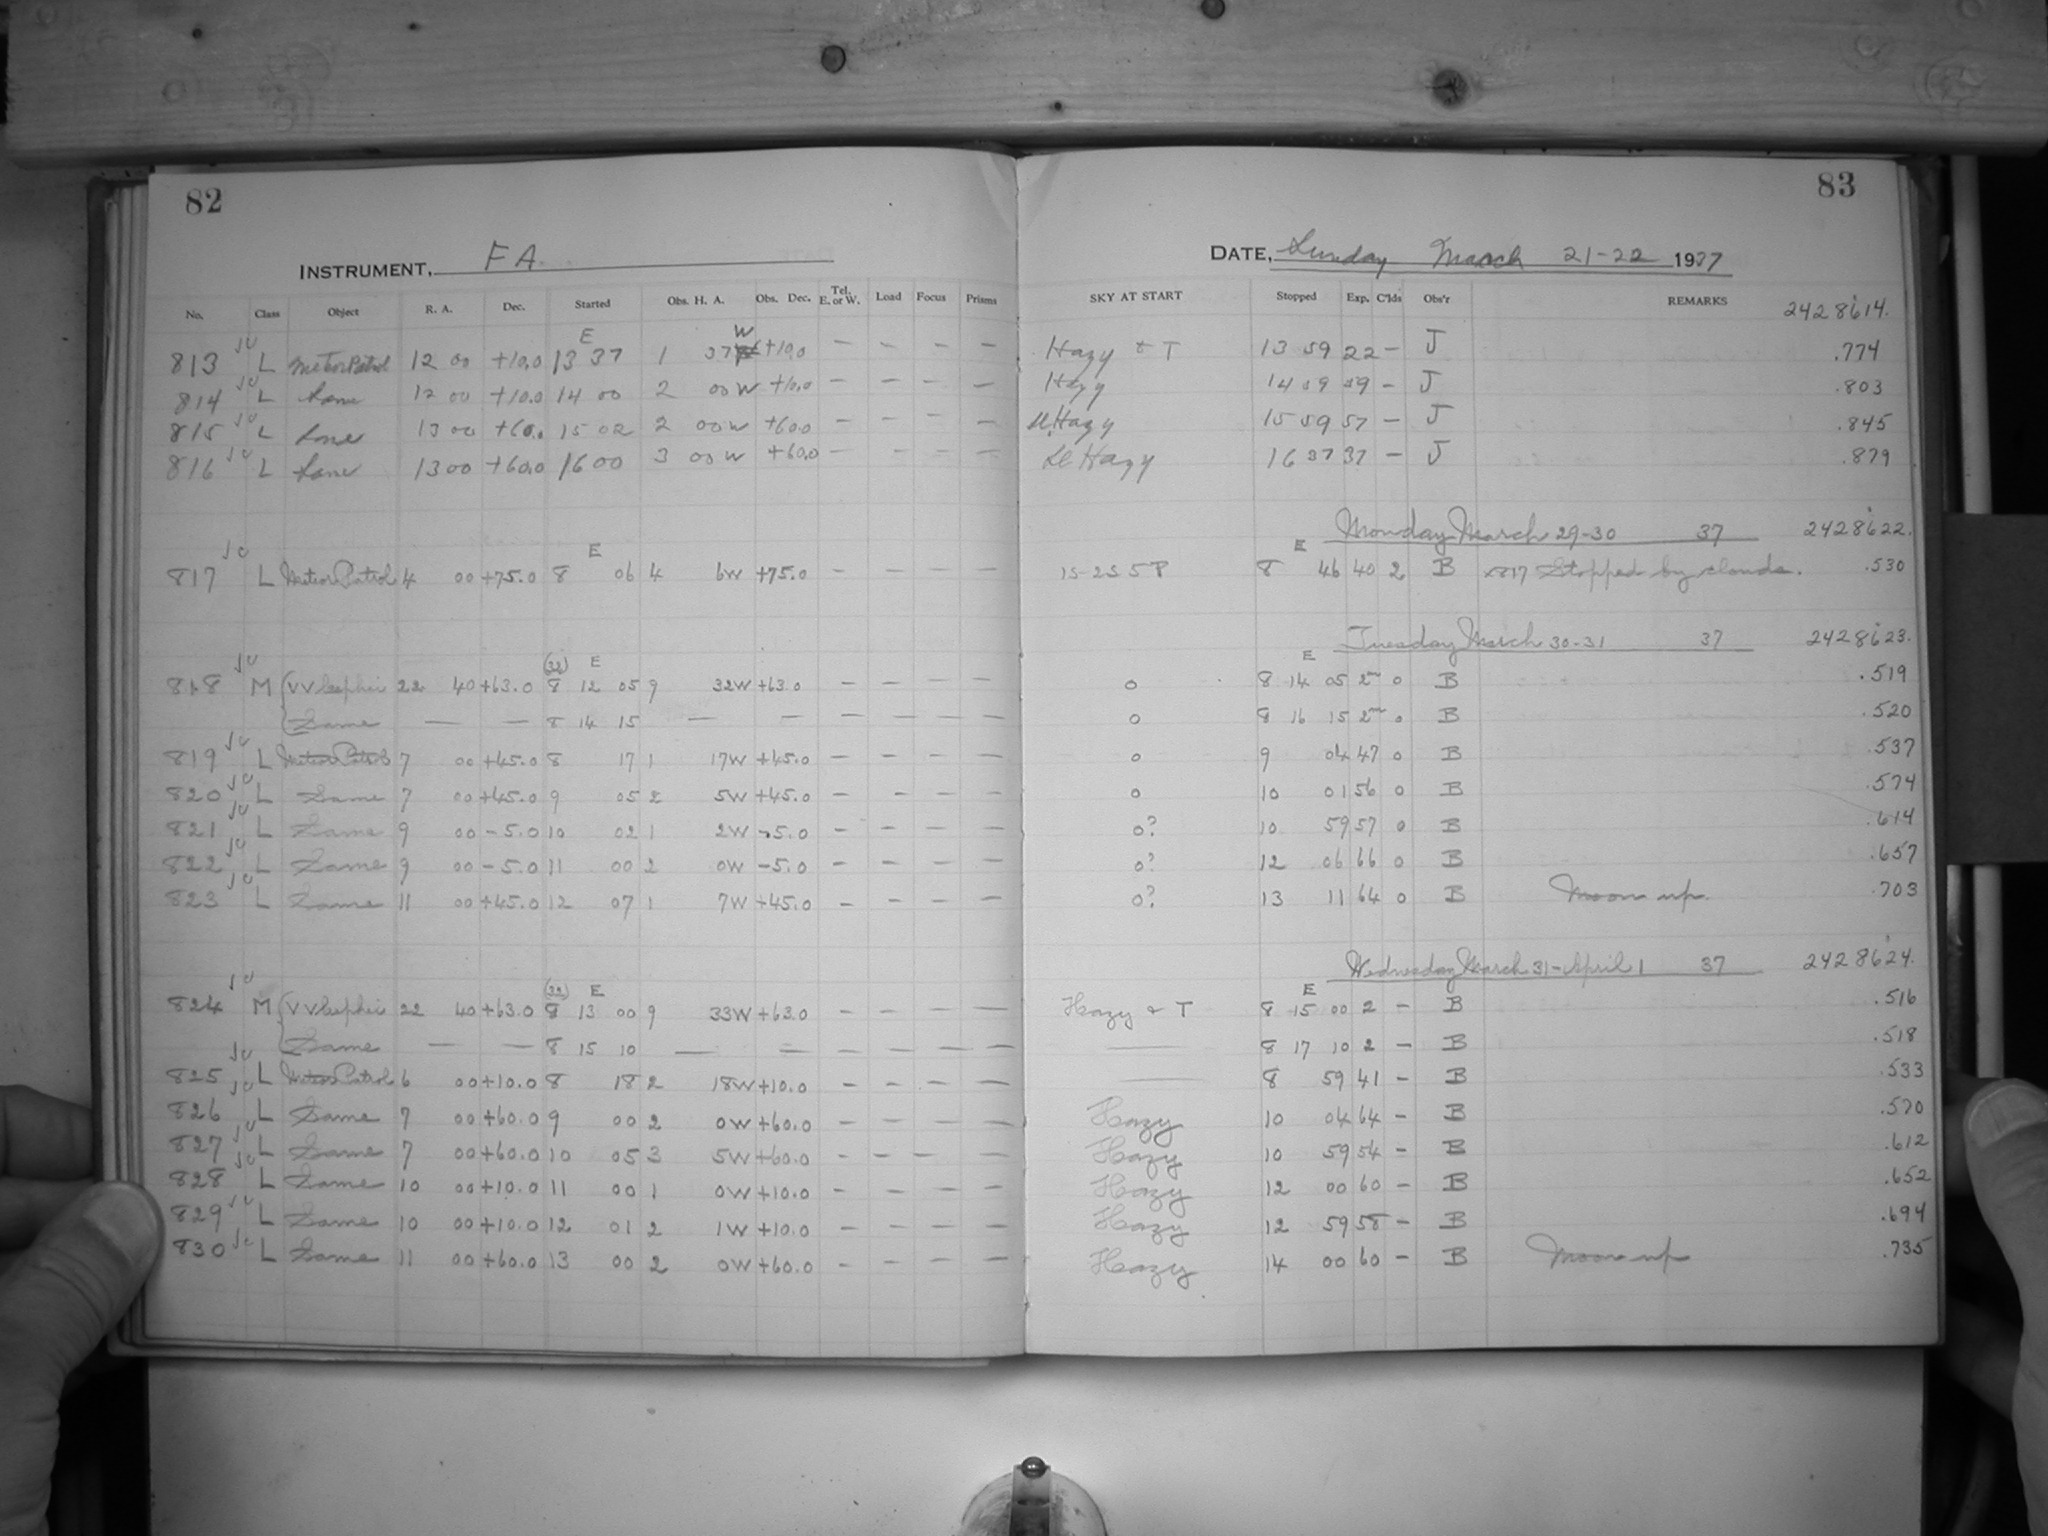 82
83
INSTRUMENT, FA
DATE, Sunday March 21-22 1937
No. Class Object R. A. Dec. Started Obs. H. A. Obs. Dec. Tel. E. or W. Load Focus Prisms SKY AT START Stopped Exp. C'lds Obs'r REMARKS 2428614.
E W
813 L Meteor Patrol 12 00 +10.0 13 37 1 37 +10.0 — — — — Hazy & T 13 59 22 — J .774
814 L Same 12 00 +10.0 14 00 2 00 W +10.0 — — — — Hazy 14 59 59 — J .803
815 L Same 13 00 +60.0 15 02 2 00 W +60.0 — — — — Sl. Hazy 15 59 57 — J .845
816 L Same 13 00 +60.0 16 00 3 00 W +60.0 — — — — Sl Hazy 16 37 37 — J .879
Monday March 29-30 37 2428622.
E E
817 L Meteor Patrol 4 00 +75.0 8 06 4 6W +75.0 — — — — 15-25 5P 8 46 40 2 B x817 Stopped by clouds. .530
Tuesday March 30-31 37 2428623.
(32) E E
818 M VV Cephei 22 40 +63.0 8 12 05 9 32W +63.0 — — — — 0 8 14 05 2m 0 B .519
Same — — 8 14 15 — — — — — — 0 8 16 15 2m 0 B .520
819 L Meteor Patrol 7 00 +45.0 8 17 1 17W +45.0 — — — — 0 9 04 47 0 B .537
820 L Same 7 00 +45.0 9 05 2 5W +45.0 — — — — 0 10 01 56 0 B .574
821 L Same 9 00 -5.0 10 02 1 2W -5.0 — — — — 0? 10 59 57 0 B .614
822 L Same 9 00 -5.0 11 00 2 0W -5.0 — — — — 0? 12 06 66 0 B .657
823 L Same 11 00 +45.0 12 07 1 7W +45.0 — — — — 0? 13 11 64 0 B Moon up. .703
Wednesday March 31-April 1 37 2428624.
(32) E E
824 M VV Cephei 22 40 +63.0 8 13 00 9 33W +63.0 — — — — Hazy & T 8 15 00 2 — B .516
Same — — 8 15 10 — — — — — — — 8 17 10 2 — B .518
825 L Meteor Patrol 6 00 +10.0 8 18 2 18W +10.0 — — — — — 8 59 41 — B .533
826 L Same 7 00 +60.0 9 00 2 0W +60.0 — — — — Hazy 10 04 64 — B .570
827 L Same 7 00 +60.0 10 05 3 5W +60.0 — — — — Hazy 10 59 54 — B .612
828 L Same 10 00 +10.0 11 00 1 0W +10.0 — — — — Hazy 12 00 60 — B .652
829 L Same 10 00 +10.0 12 01 2 1W +10.0 — — — — Hazy 12 59 58 — B .694
830 L Same 11 00 +60.0 13 00 2 0W +60.0 — — — — Hazy 14 00 60 — B Moon up .735